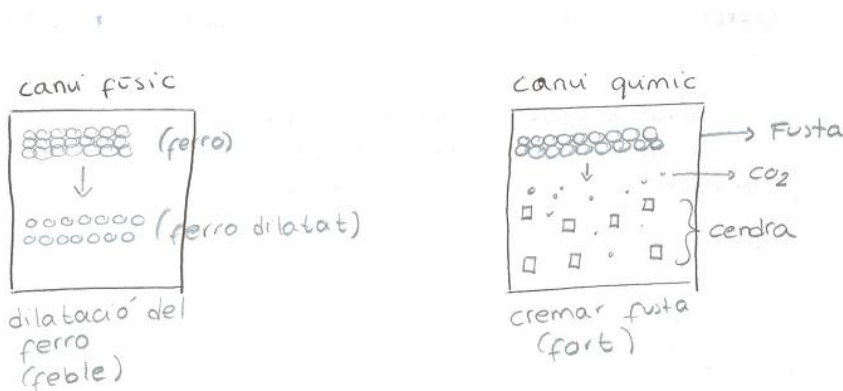 canvi físic
(ferro)
(ferro dilatat)
dilatació del
ferro
(feble)
canvi químic
Fusta
CO2
cendra
cremar fusta
(fort)